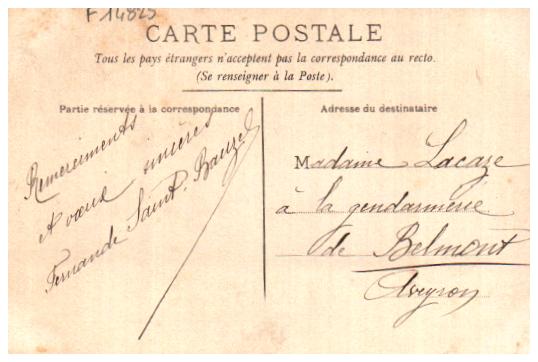 F 14825
CARTE POSTALE
Tous les pays étrangers n'acceptent pas la correspondance au recto.
(Se renseigner à la Poste).
Partie réservée à la correspondance
Remerciments
et vœux sincères
Fernande Saint-Bauzel
Adresse du destinataire
Madame Lacaze
à la gendarmerie
de Belmont
Aveyron